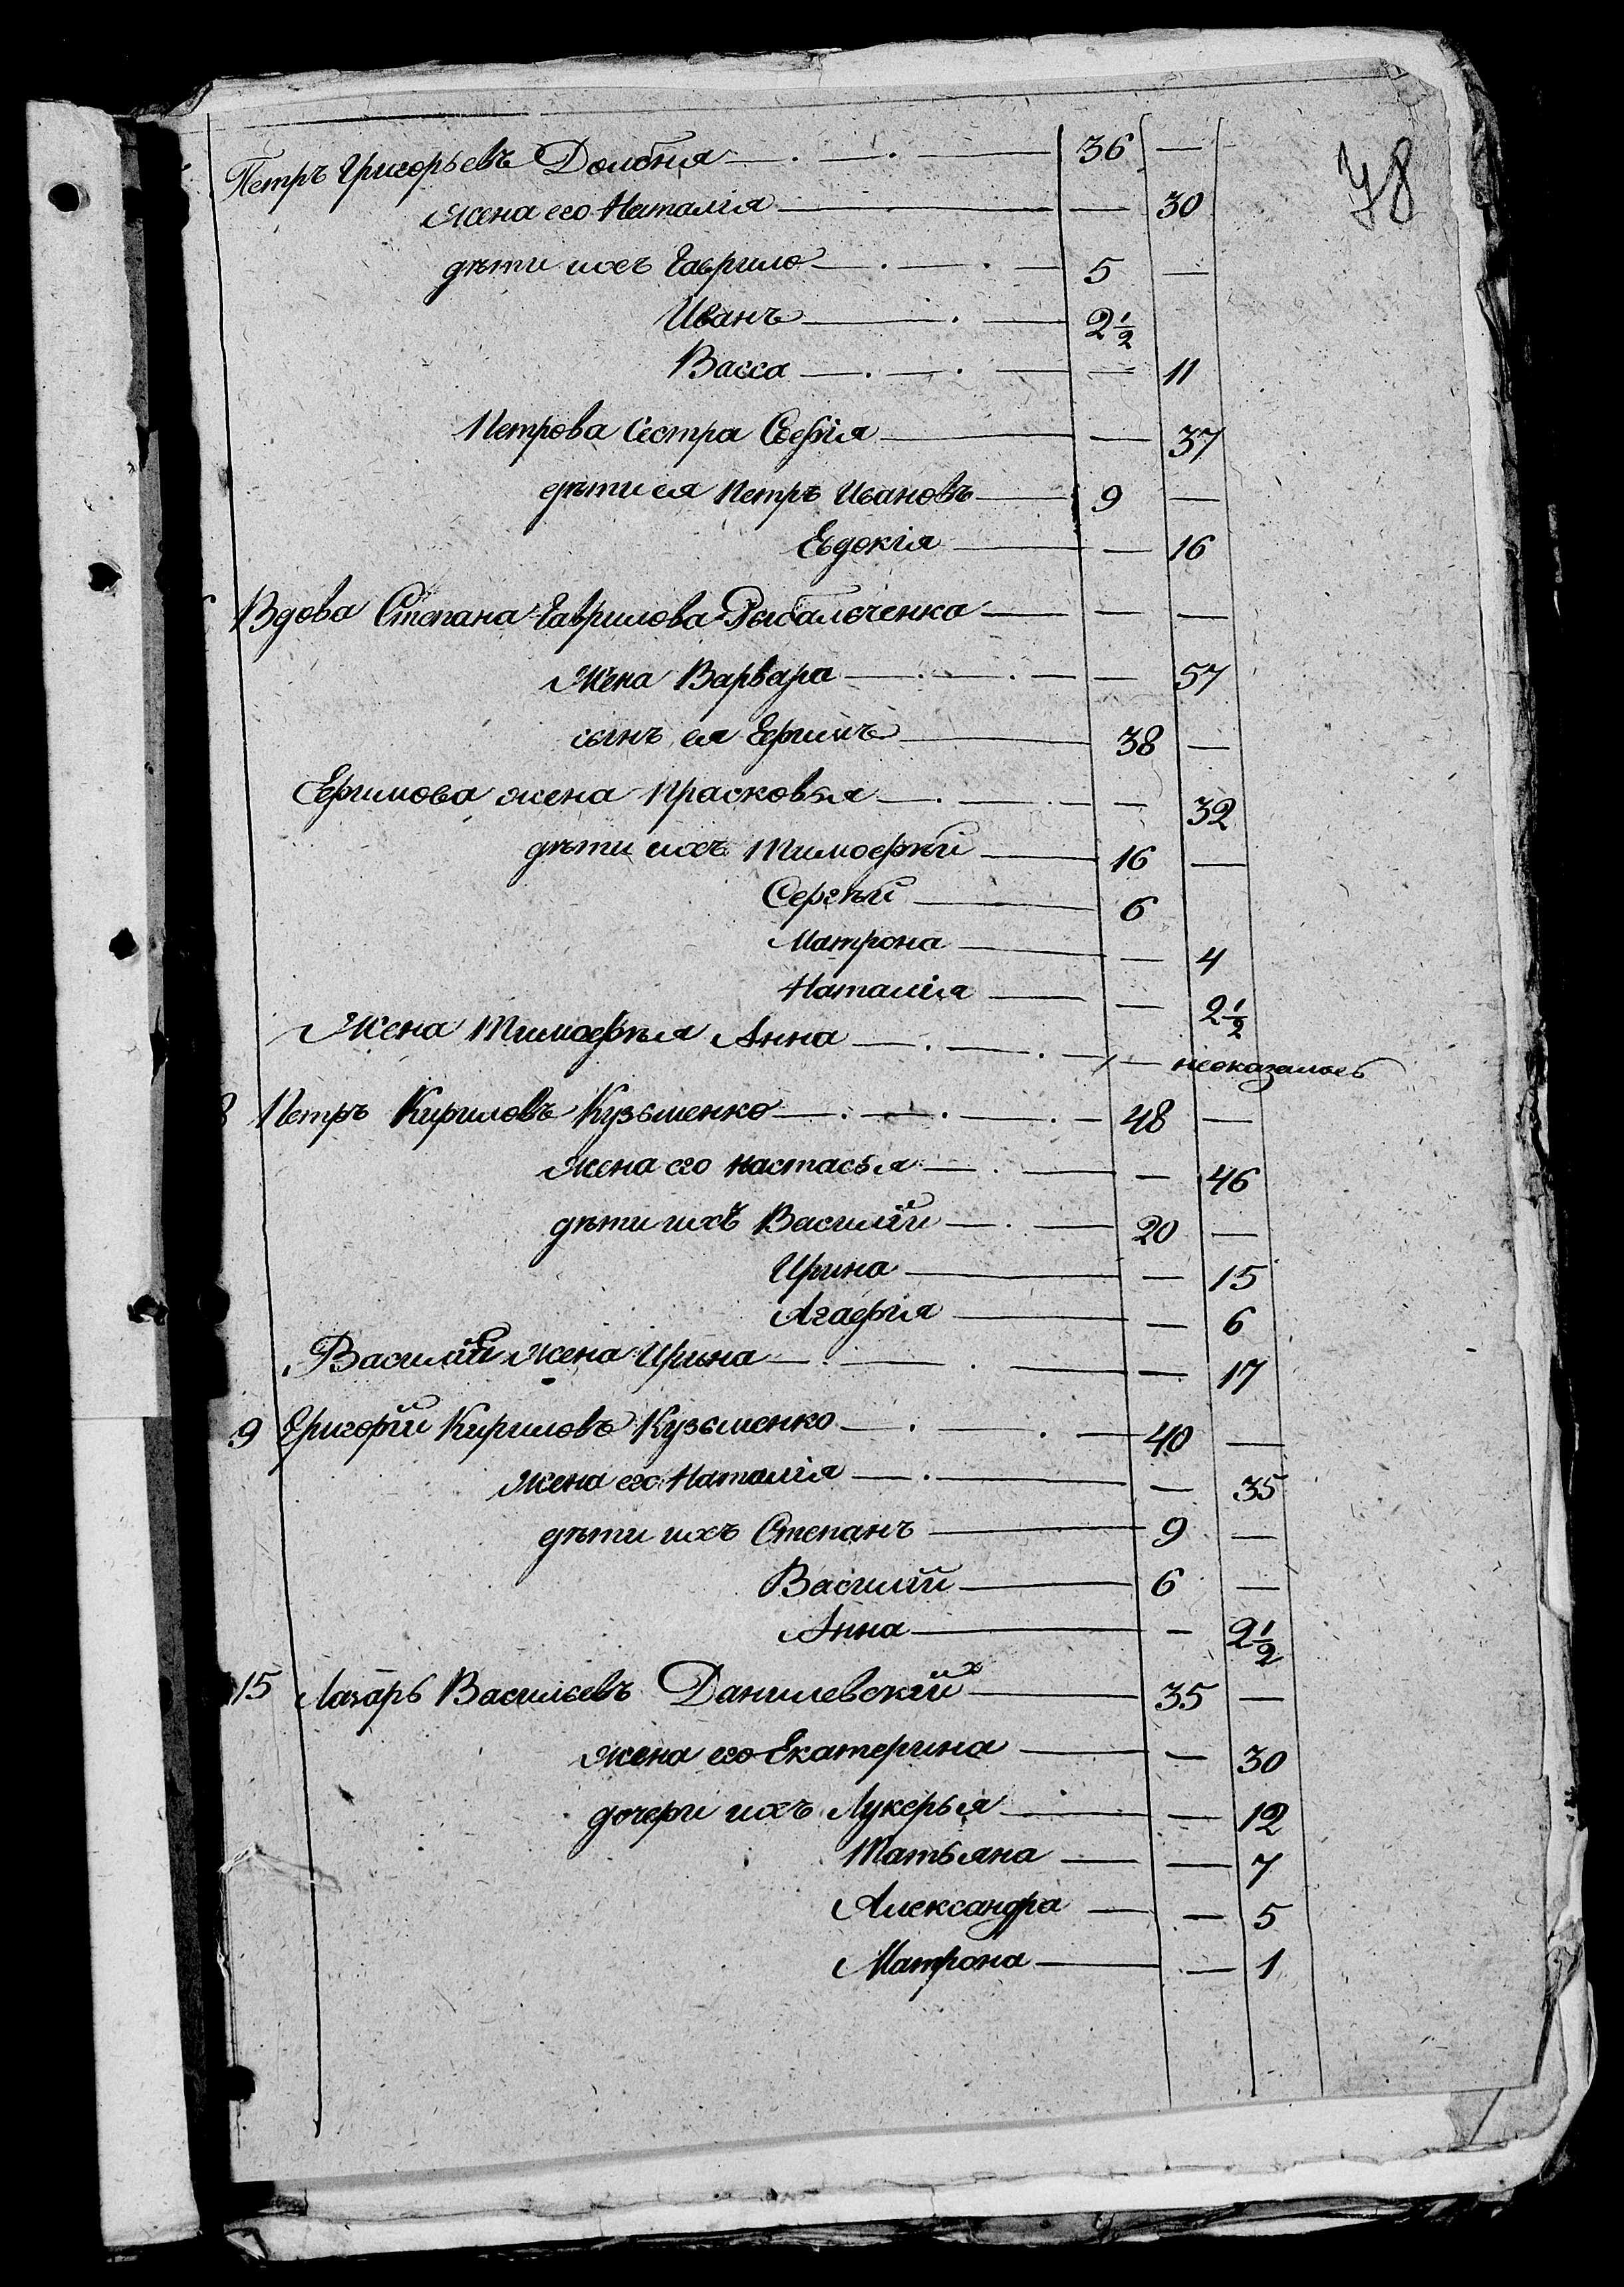 78
Петръ Григорьевъ Долбня — 36 —
Жена его Наталія — — 30
дѣти ихъ Гаврило — 5 —
Иванъ — 2½
Васса — — 11
Петрова Сестра Софія — — 37
дѣти ея Петръ Ивановъ — 9 —
Евдокія — — 16
Вдова Степана Гаврилова Рыбальченка — — —
Жена Варвара — — 57
сынъ ея Ефимъ — 38 —
Ефимова жена Прасковья — — 32
дѣти ихъ Тимофѣй — 16 —
Сергѣй — 6
Матрона — — 4
Наталія — — 2½
Жена Тимофѣя Анна — — неоказалось
8 Петръ Кириловъ Кузьменко — 48 —
Жена его Настасья — — 46
дѣти ихъ Василій — 20 —
Ирина — — 15
Агафія — — 6
Василія жена Ирина — — 17
9 Григорій Кириловъ Кузьменко — 40 —
Жена его Наталія — — 35
дѣти ихъ Степанъ — 9 —
Василій — 6 —
Анна — — 2½
15 Лазарь Васильевъ Данилевскій — 35 —
жена его Екатерина — — 30
дочери ихъ Лукерья — — 12
Татьяна — — 7
Александра — — 5
Матрона — — 1